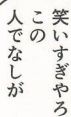 笑いすぎやろ
この
人でなしが